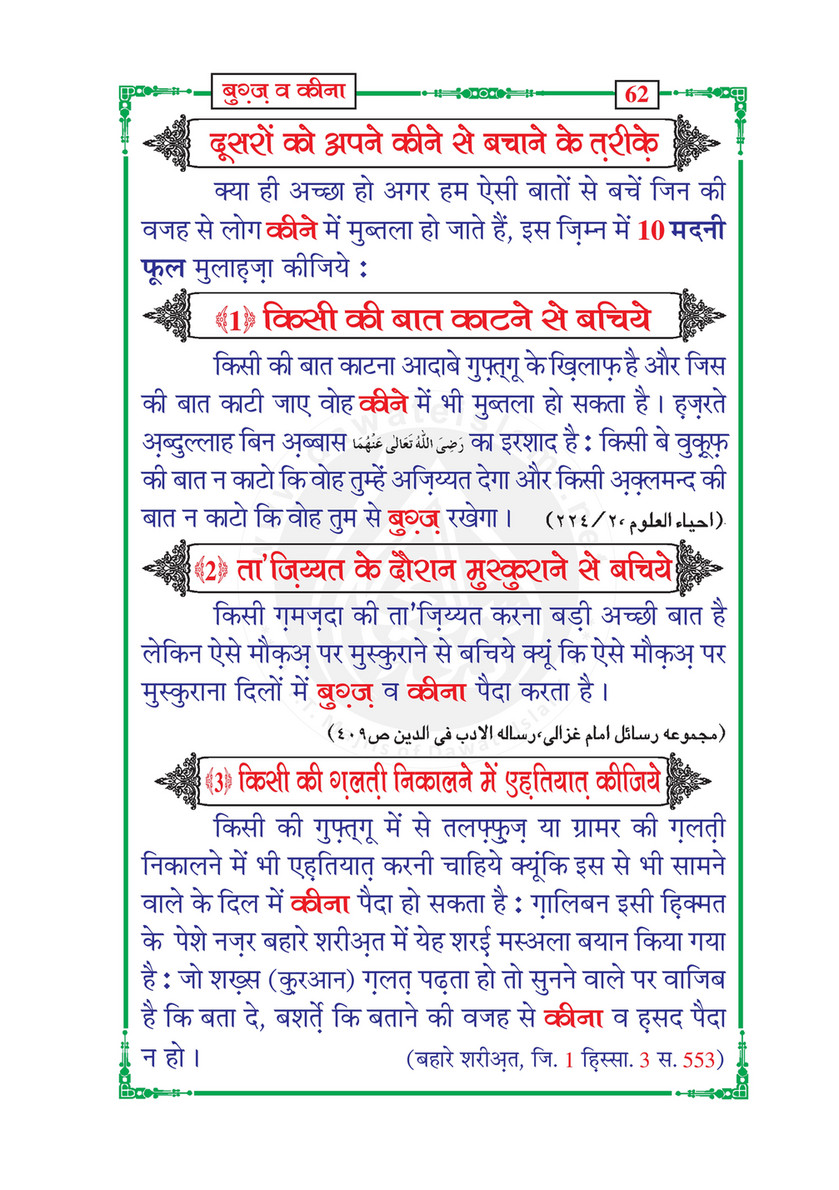 बुग़्ज़ व कीना
62
दूसरों को अपने कीने से बचाने के त़रीक़े
क्या ही अच्छा हो अगर हम ऐसी बातों से बचें जिन की
वजह से लोग कीने में मुब्तला हो जाते हैं, इस ज़िम्न में 10 मदनी
फूल मुलाह़ज़ा कीजिये :
﴾1﴿ किसी की बात काटने से बचिये
किसी की बात काटना आदाबे गुफ़्त्गू के ख़िलाफ़ है और जिस
की बात काटी जाए वोह कीने में भी मुब्तला हो सकता है । ह़ज़रते
अ़ब्दुल्लाह बिन अ़ब्बास رَضِیَ اللّٰهُ تَعَالٰی عَنْهُمَا का इरशाद है : किसी बे वुक़ूफ़
की बात न काटो कि वोह तुम्हें अज़िय्यत देगा और किसी अ़क़्लमन्द की
बात न काटो कि वोह तुम से बुग़्ज़ रखेगा । (احیاء العلوم ،۲/۲۲٤)
﴾2﴿ ता'ज़िय्यत के दौरान मुस्कुराने से बचिये
किसी ग़मज़दा की ता'ज़िय्यत करना बड़ी अच्छी बात है
लेकिन ऐसे मौक़अ़ पर मुस्कुराने से बचिये क्यूं कि ऐसे मौक़अ़ पर
मुस्कुराना दिलों में बुग़्ज़ व कीना पैदा करता है ।
(مجموعه رسائل امام غزالی،رساله الادب فی الدین ص٤٠٩)
﴾3﴿ किसी की ग़लत़ी निकालने में एह़तियात़ कीजिये
किसी की गुफ़्त्गू में से तलफ़्फ़ुज़ या ग्रामर की ग़लत़ी
निकालने में भी एह़तियात़ करनी चाहिये क्यूंकि इस से भी सामने
वाले के दिल में कीना पैदा हो सकता है : ग़ालिबन इसी ह़िक्मत
के पेशे नज़र बहारे शरीअ़त में येह शरई मस्अला बयान किया गया
है : जो शख़्स (क़ुरआन) ग़लत़ पढ़ता हो तो सुनने वाले पर वाजिब
है कि बता दे, बशर्त़े कि बताने की वजह से कीना व ह़सद पैदा
न हो । (बहारे शरीअ़त, जि. 1 ह़िस्सा. 3 स. 553)